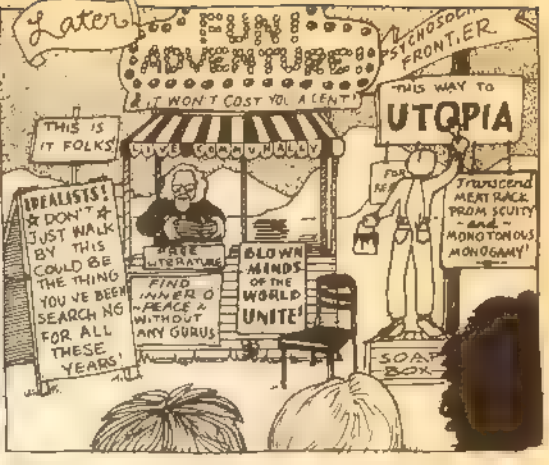 Later
FUN!
ADVENTURE!
& IT WON'T COST YOU A CENT!
PSYCHOSOCIAL
FRONTIER
THIS WAY TO
UTOPIA
THIS IS
IT FOLKS
LIVE COMMUNALLY
IDEALISTS!
DON'T
JUST WALK
BY THIS
COULD BE
THE THING
YOU'VE BEEN
SEARCHING
FOR ALL
THESE
YEARS!
FREE
LITERATURE
FIND
INNER
PEACE
WITHOUT
ANY GURUS
BLOWN
MINDS
OF THE
WORLD
UNITE!
FOR
Transcend
MEATRACK
PROMISCUITY
and
MONOTONOUS
MONOGAMY!
SOAP
BOX